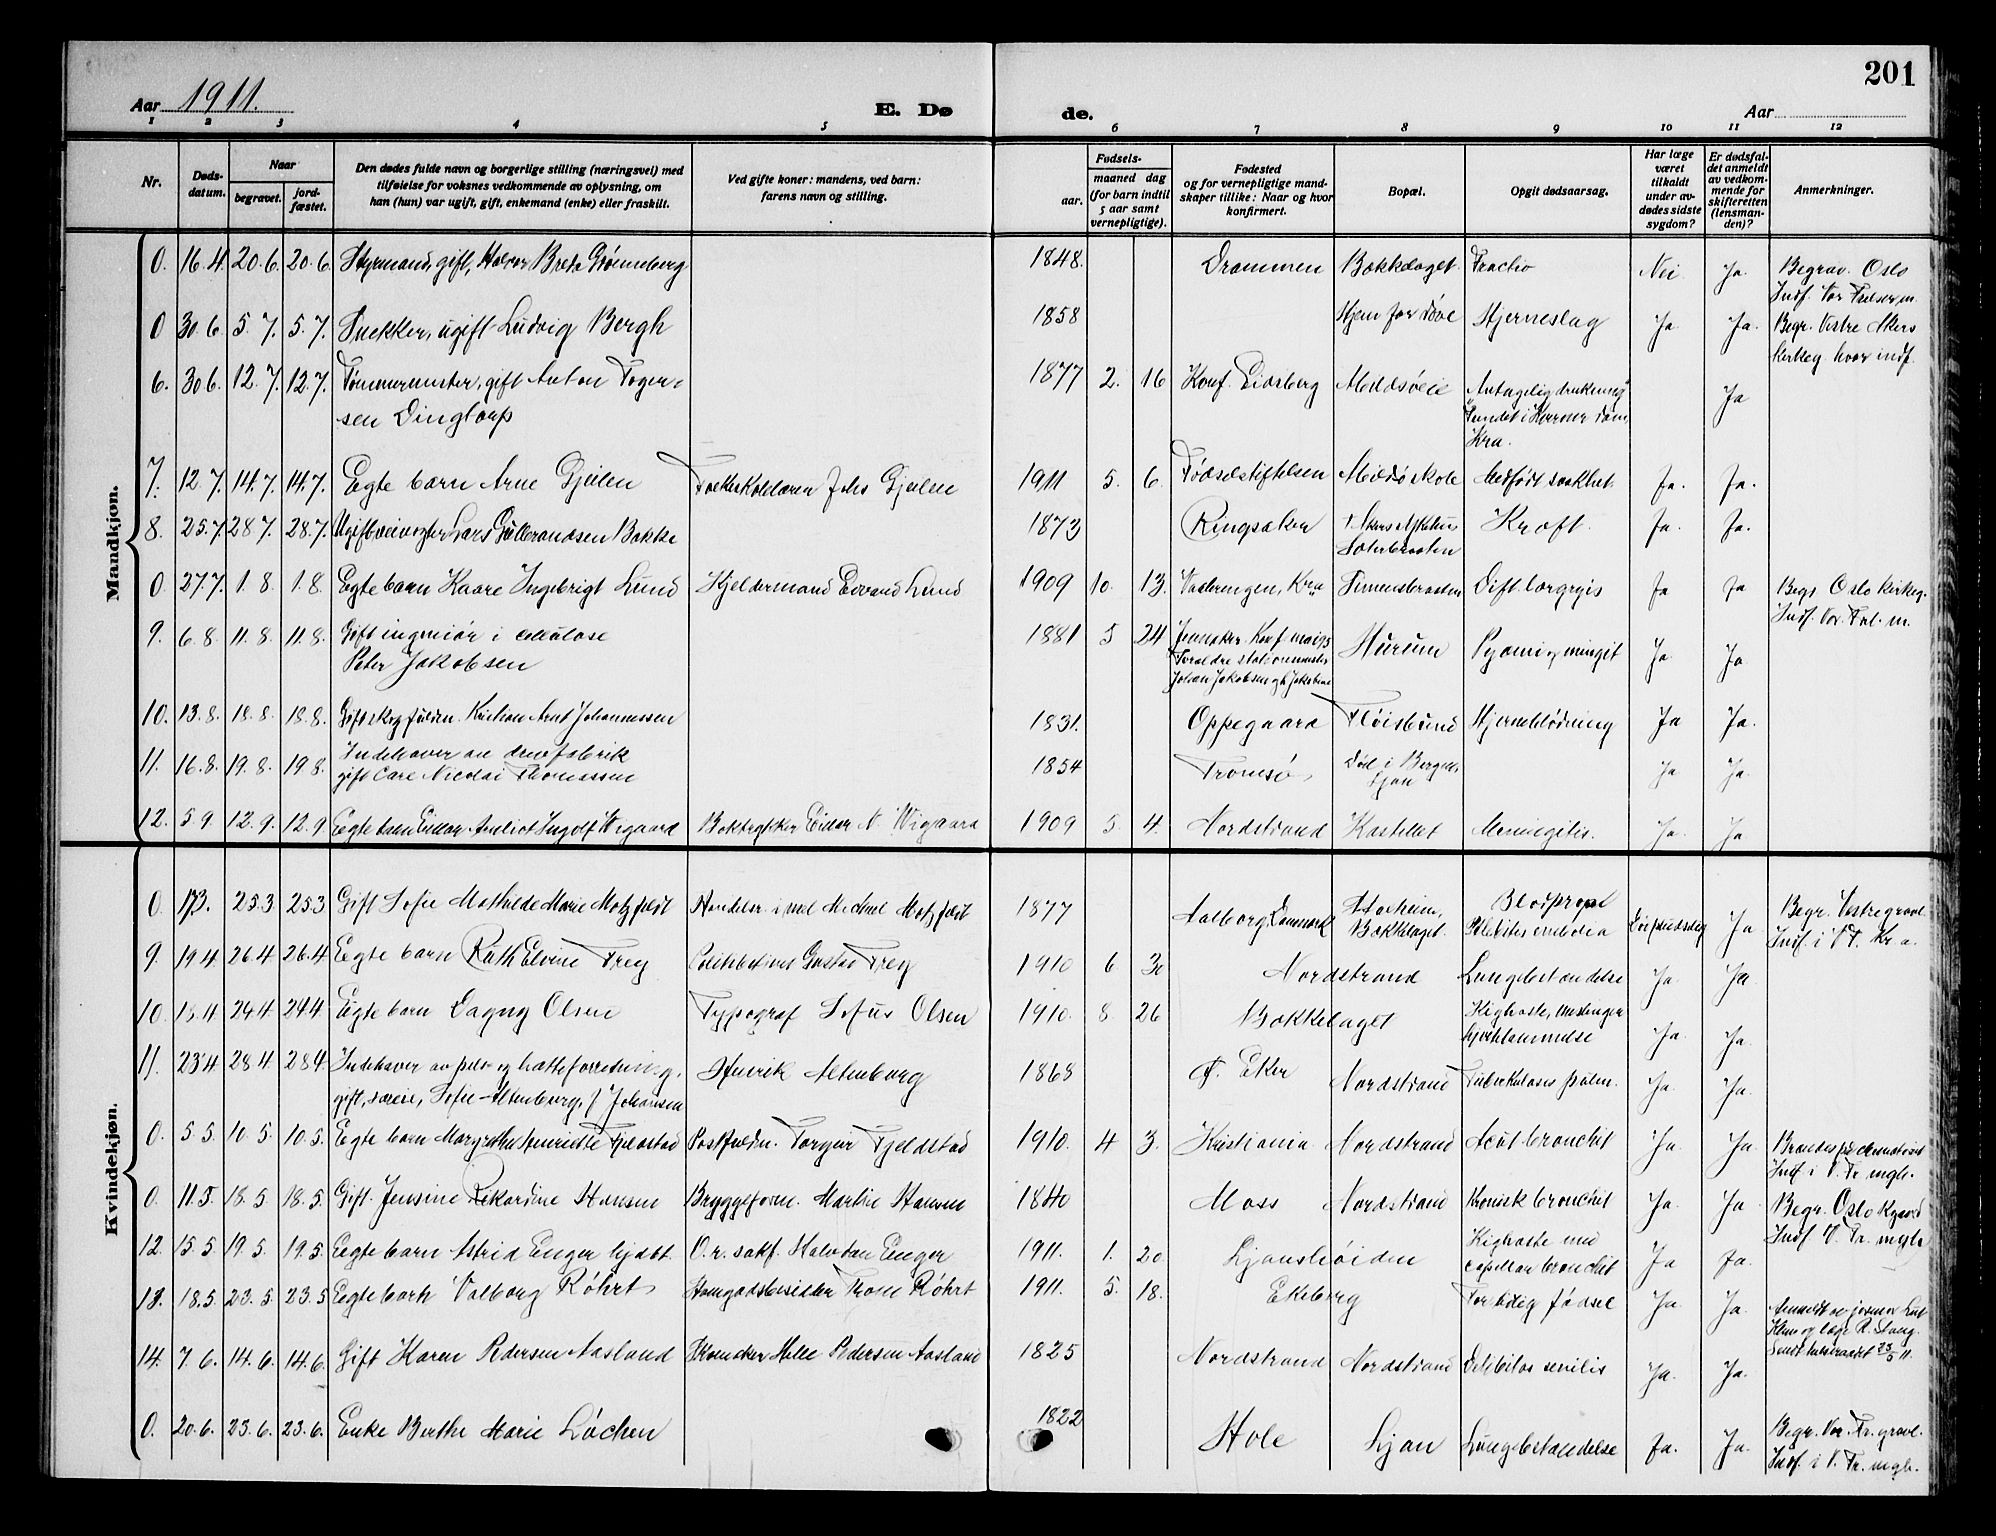 201
Aar 1911.
E. Dø
de.
Aar
1 2 3 4 5 6 7 8 9 10 11 12
Nr.
Døds-
datum.
Naar
begravet.
jord-
fæstet.
Den dødes fulde navn og borgerlige stilling (næringsvei) med
tilføielse for voksnes vedkommende av oplysning, om
han (hun) var ugift, gift, enkemand (enke) eller fraskilt.
Ved gifte koner: mandens, ved barn:
farens navn og stilling.
Fødsels-
aar.
maaned dag
(for barn indtil
5 aar samt
vernepligtige).
Fødested
og for vernepligtige mand-
skaper tillike: Naar og hvor
konfirmert.
Bopæl.
Opgit dødsaarsag.
Har læge
været
tilkaldt
under av-
dødes sidste
sygdom?
Er dødsfal-
det anmeldt
av vedkom-
mende for
skifteretten
(lensman-
den)?
Anmerkninger.
Mandkjøn.
0. 16.4. 20.6. 20.6. Styrmand, gift, Halvor Brede Grønneberg 1848. Drammen Bækkelaget. Fractio Nei Ja. Begrav. Oslo
Indf. Vor Frelser m.
0 30.6. 5.7. 5.7. Snekker, ugift Ludvig Bergh 1858 Hjem for Døve Hjerneslag Ja Ja. Begr. Vestre Akers
kirkeg. hvor indf.
6. 30.6. 12.7. 12.7. Tømmermester, gift Anton Toger- 1877 2. 16 Konf. Eidsberg Antagelig drukning Ja
sen Dingtorp
Kra.
7. 12.7. 14.7. 14.7. Egte barn Arne Gjølen Folkeskolelærer Johs Gjølen 1911 5. 6. Fødselsstiftelsen Ja. Ja.
8. 25.7. 28.7. 28.7. Ugift Lars Gulbrandsen Bakke 1873 Ringsaker Kræft. Ja. Ja.
0. 27.7. 1.8. 1.8. Egte barn Kaare Ingebrigt Lund Kjeldermand Edvard Lund 1909 10. 13. Vaalerengen, Kra Ja Ja Begr. Oslo kirkeg.
Indf. Vor. Frel. m.
9. 6.8. 11.8. 11.8. Gift ingeniør i cellulose 1881 5 24 Hurum Ja Ja
Peter Jakobsen
10. 13.8. 18.8. 18.8. Gift Kristian Arnt Johannessen 1831. Oppegaard Fløisbund Hjerneblødning Ja Ja.
11. 16.8. 19.8. 19.8. Indehaver av fabrik 1854 Tromsø Død i Bergen, Ja Ja.
gift Carl Nicolai Thomessen Ljan
12. 5.9. 12.9. 12.9. Egte barn Einar Ingolf Wigaard Boktrykker Einar N. Wigaard 1909 5. 4. Nordstrand Kastellet Meningitis. Ja. Ja
Kvindekjøn.
0. 17.3. 25.3 25.3 Gift Sofie Mathilde Marie Motzfeldt Michael Motzfeldt 1877 Aalborg, Danmark Bækkelaget. Blodprop Ja Begr. Vestre gravl.
Indf. i V. F. Kr.a.
9. 19.4 26.4 26.4 Egte barn Ruth Elvine Frey Gustav Frey 1910 6 30 Nordstrand Lungebetændelse Ja Ja
10. 18.4 24.4 24.4 Egte barn Dagny Olsen Typograf Sofus Olsen 1910. 8. 26 Bækkelaget Kighoste, meslinger Ja. Ja.
11. 23.4 28.4. 28.4. Indehaver av pels- og hatteforretning, Henrik Altenburg 1868 Ø. Eker Nordstrand Tuberkulosis pulm. Ja. Ja.
gift, Sofie Altenburg, f. Johansen
0. 5.5. 10.5. 10.5. Egte barn Margrethe Henriette Fjeldstad Torgeir Fjeldstad 1910. 4 3. Kristiania Nordstrand Acut bronchit Ja. Ja
Indf. i V. Fr. mgh.
0. 11.5. 18.5. 18.5. Gift. Jensine Rikardine Hansen Bryggeform. Martin Hansen 1840 Moss Nordstrand Kronisk bronchit Ja. Ja. Begr. Oslo Kgaard
Indf. V. Fr. mgh
12. 15.5. 19.5. 19.5. Egte barn Astrid Enger O.r. sakf. Halvdan Enger 1911. 1. 20. Ljanshøiden Kighoste med Ja Ja.
capillær bronchit
13. 18.5. 23.5. 23.5 Egte barn Valborg Röhrt Röhrt 1911. 5. 18. Ekeberg For tidlig fødsel Ja. Ja.
14. 7.6. 14.6. 14.6. Gift Karen Pedersen Aasland Pedersen Aasland 1825 Nordstrand Nordstrand Debilitas senilis Ja. Ja.
0. 20.6. 23.6. 23.6. Enke Berthe Marie Løchen 1822 Hole Ljan Lungebetændelse Ja. Ja. Begr. Vor. Fr. gravl.
Indf. i V. Fr. mgh.